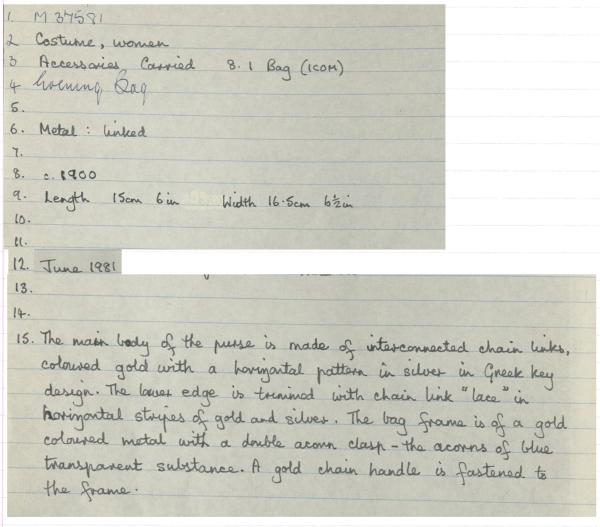 1. M 37581
2 Costume, women
3 Accessories Carried 8.1 Bag (ICOM)
4 Evening Bag
5.
6. Metal : linked
7.
8. c. 1900
9. Length 15cm 6in Width 16.5cm 6½in
10.
11.
12. June 1981
13.
14.
15. The main body of the purse is made of interconnected chain links,
coloured gold with a horizontal pattern in silver in Greek key
design. The lower edge is trimmed with chain link "lace" in
horizontal stripes of gold and silver. The bag frame is of a gold
coloured metal with a double acorn clasp - the acorns of blue
transparent substance. A gold chain handle is fastened to
the frame.